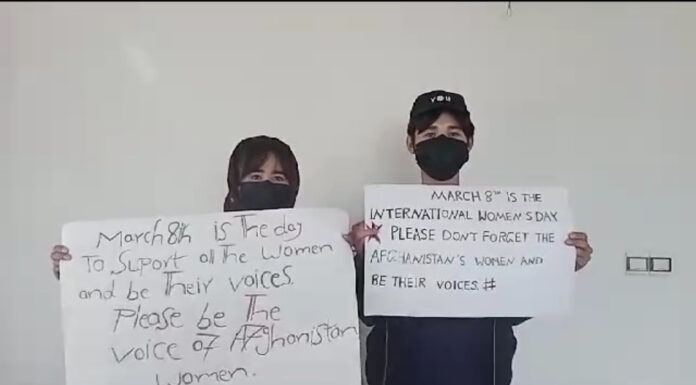 YOU
March 8th is The day
To Suport all The Women
and be Their voices.
Please be The
voice of Afghanistan
women.
MARCH 8TH IS THE
INTERNATIONAL WOMEN'S DAY
PLEASE DON'T FORGET THE
AFGHANISTAN'S WOMEN AND
BE THEIR VOICES.#